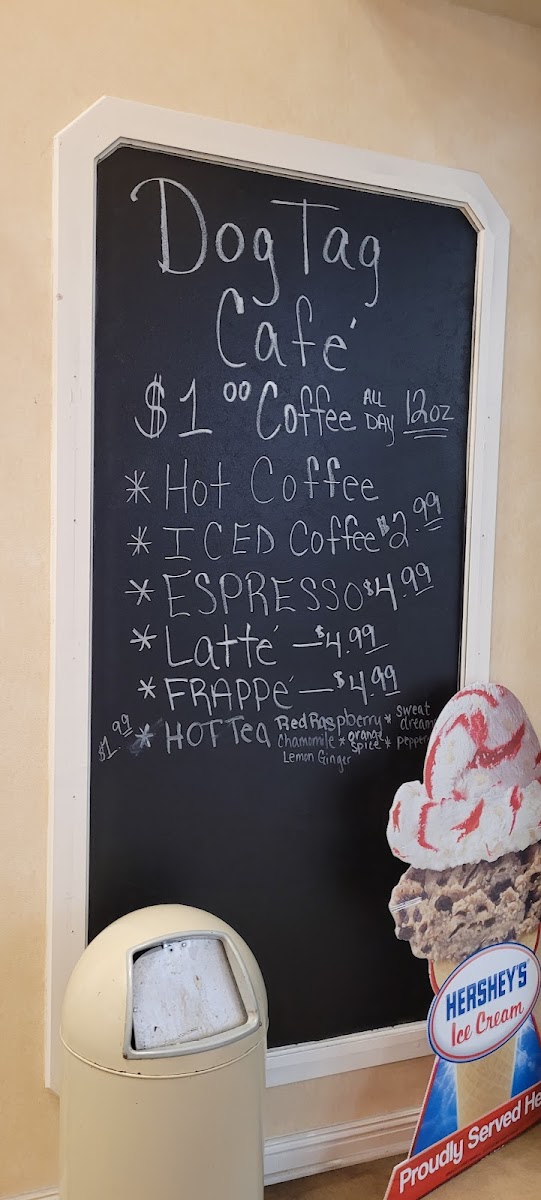 Dog Tag
Café
$1.00 Coffee ALL DAY 12oz
* Hot Coffee
* ICED Coffee $2.99
* ESPRESSO $4.99
* Latté — $4.99
* FRAPPÉ — $4.99
$1.99 * HOT Tea Red Raspberry * sweat dream
Chamomile * orange spice *
Lemon Ginger
HERSHEY'S
Ice Cream
Proudly Served